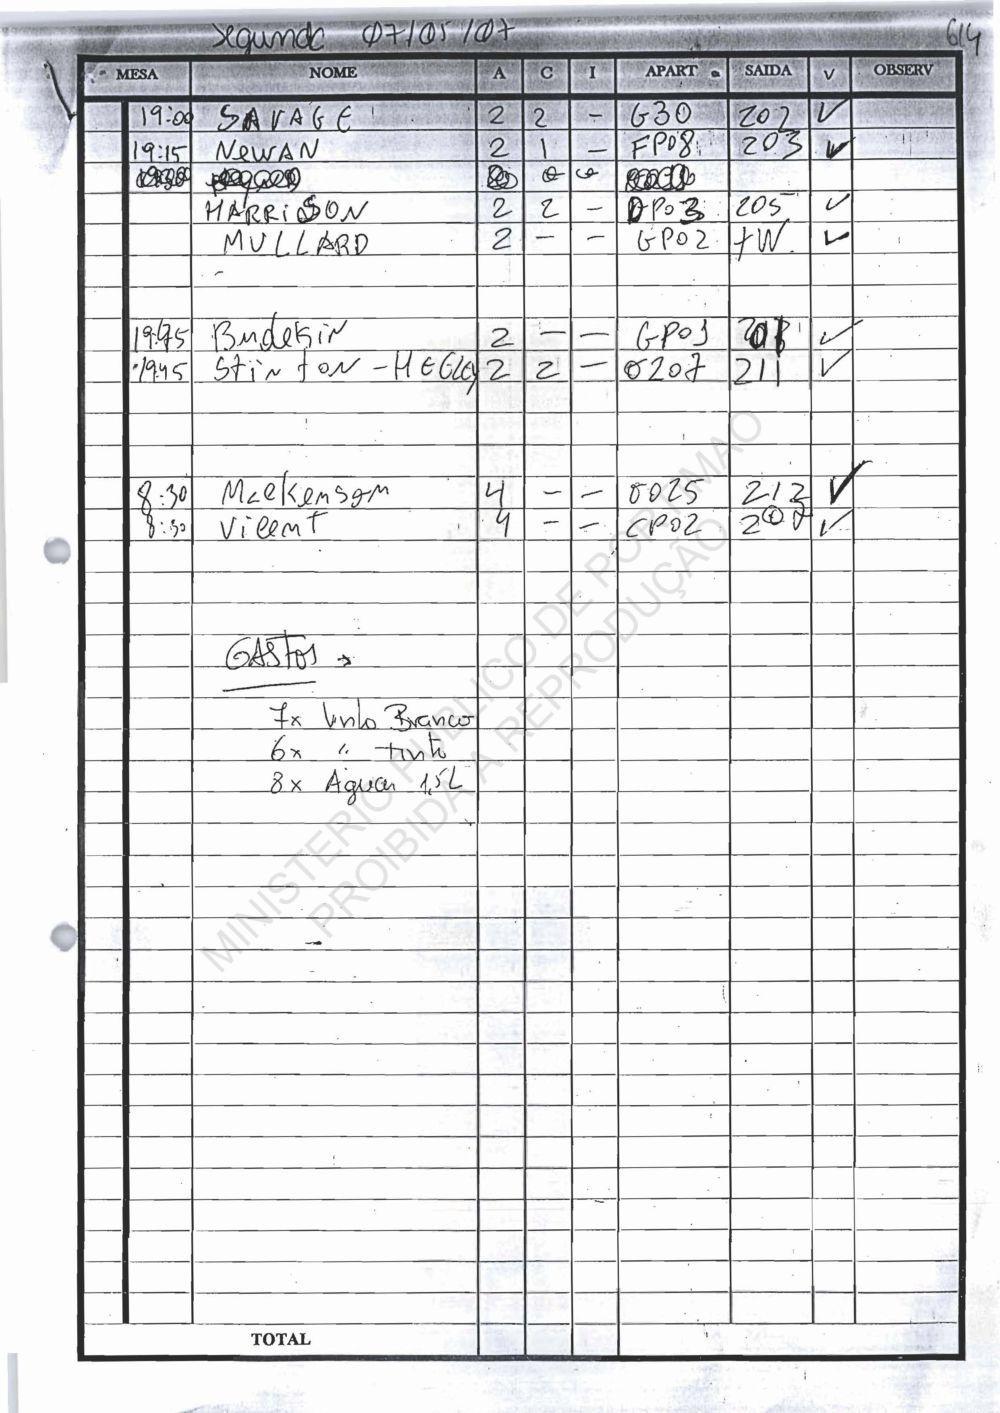 Segunda 07/05/07
614
MESA NOME A C I APART SAIDA V OBSERV
19:00 SAVAGE 2 2 - G30 202 ✓
19:15 NEWAN 2 1 - FP08 203 ✓
HARRISON 2 2 - DP03 205 ✓
MULLARD 2 - - GP02 TW. ✓
19:45 2 - - GP01 ✓
19:45 - HEGLEY 2 2 - 0207 211 ✓
8:30 Mackensam 4 - - 0025 ✓
8:30 Vicent 4 - - CP02 ✓
GASTOS →
7x Vinho Branco
6x " tinto
8x Aguas 1,5L
TOTAL
MINISTERIO PUBLICO DE PORTIMAO
PROIBIDA A REPRODUÇÃO